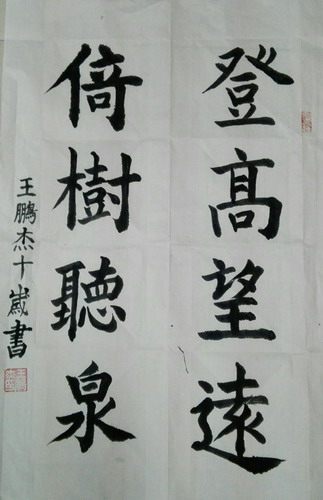 登高望遠
倚樹聽泉
王鵬杰十歲書